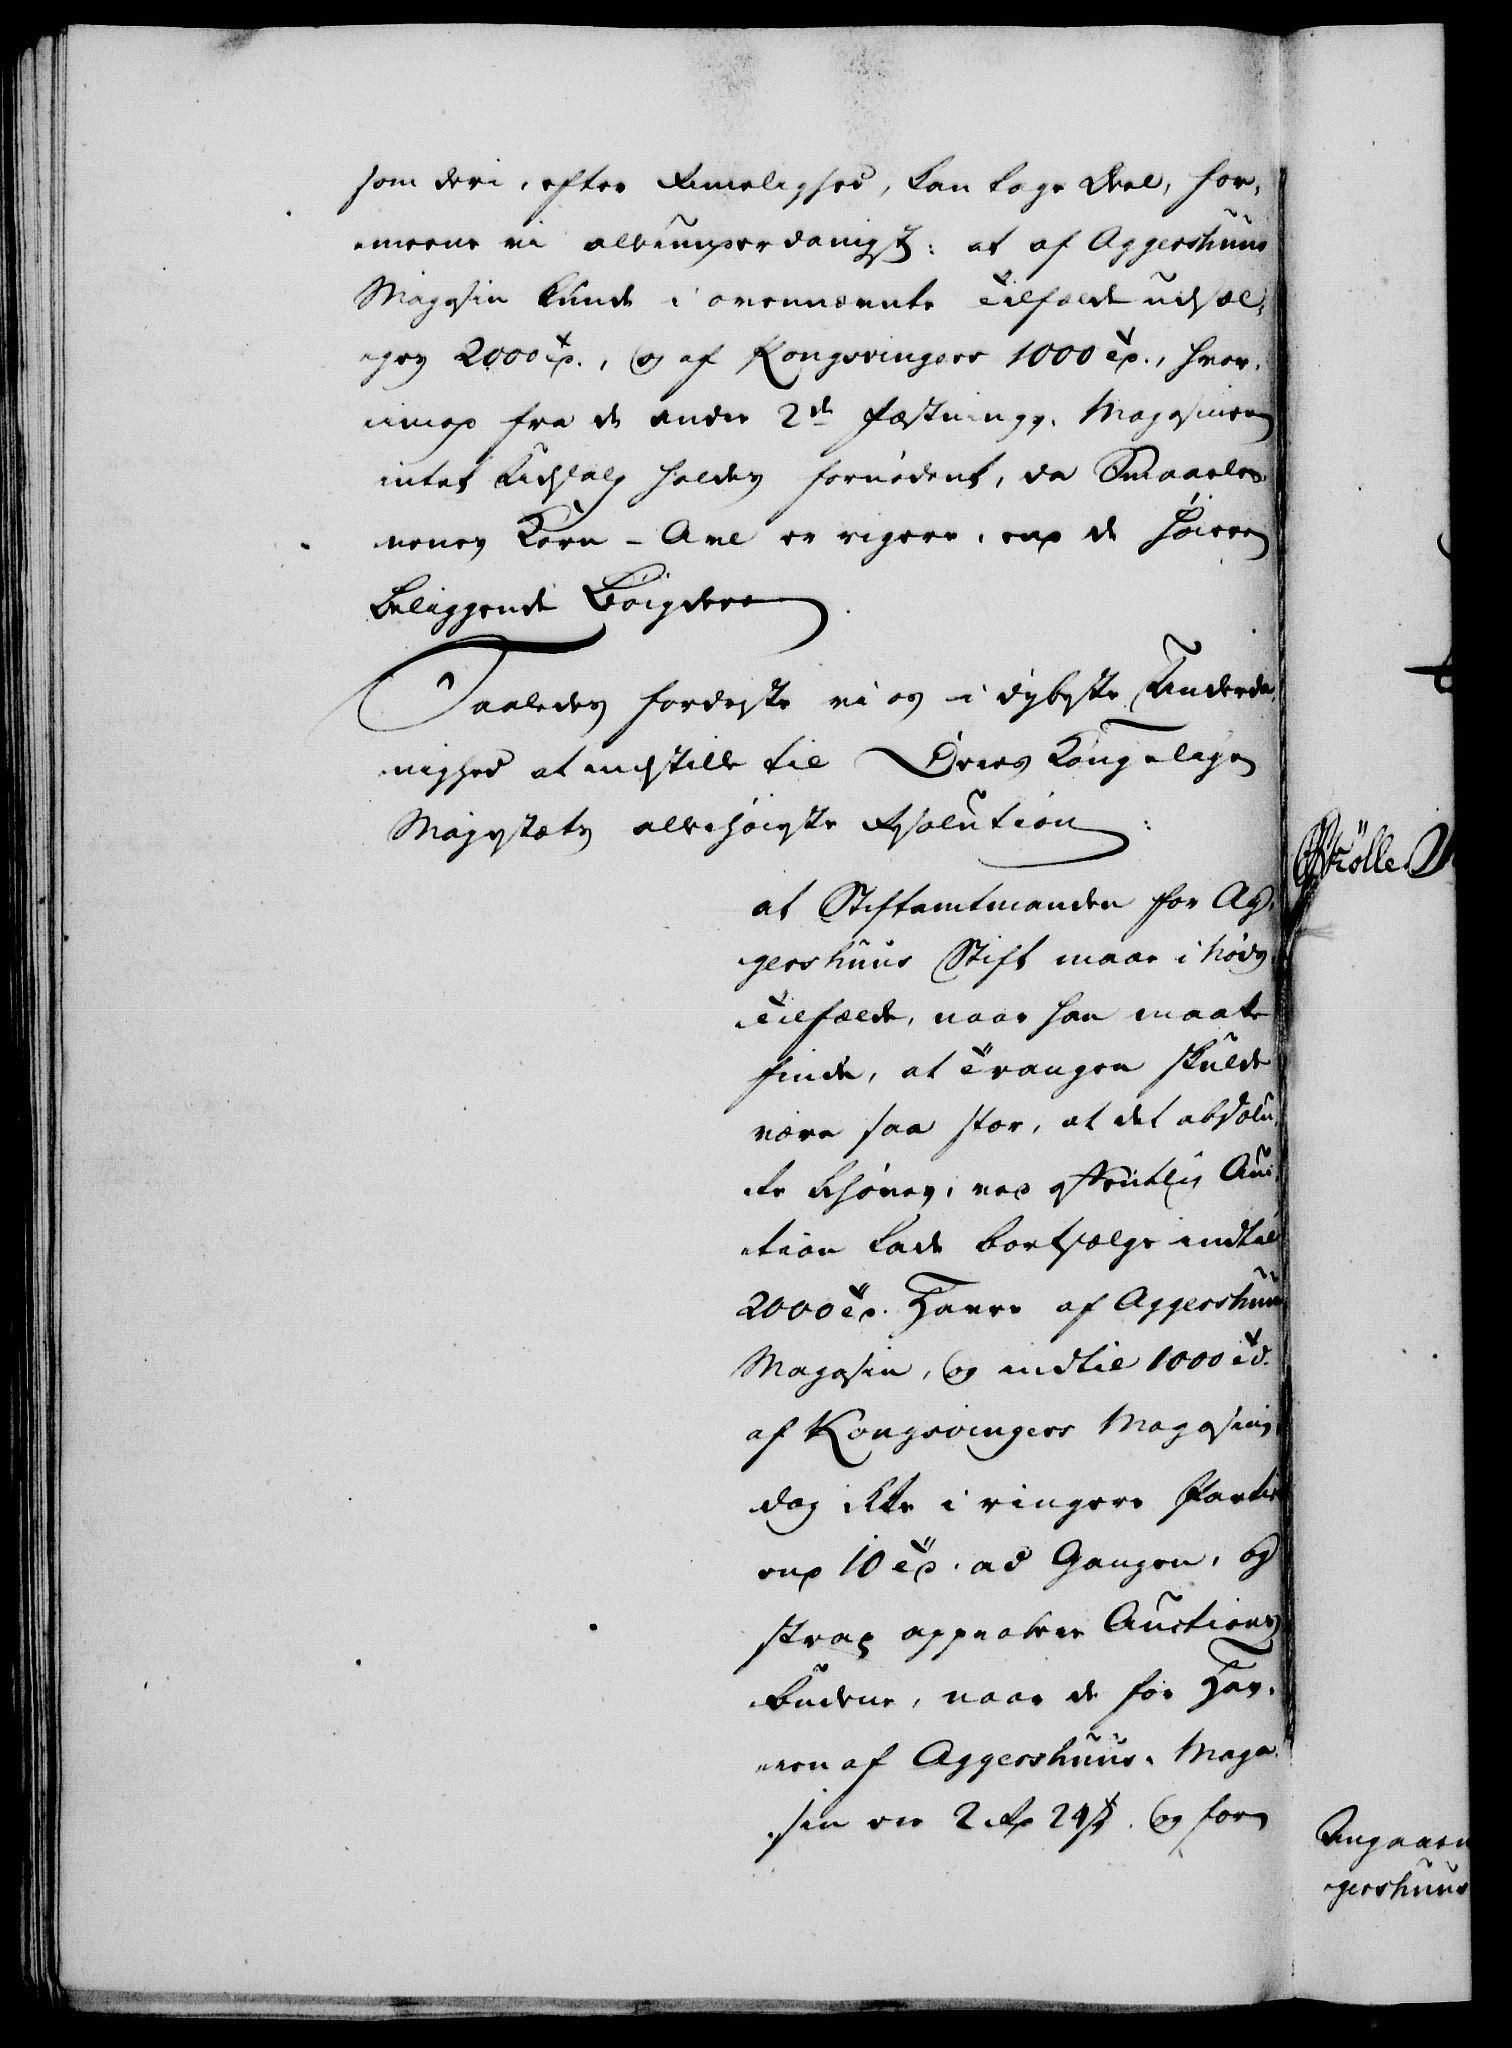 som deri, efter Rimelighed, kan tage Deel, for-
meene vi allerunderdanigst: at af Aggershuus
Magasin kunde i ovennævnte Tilfælde udsæl-
ges 2000 Tdr., og af Kongsvingers 1000 Tdr., hvor-
imod fra de andre 2de Fæstnings-Magasiner
intet Udsalg holdes fornødent, da Smaaleh-
nenes Korn-Avl er rigere, end de høiere
beliggende Bøigders.
Saaledes fordriste vi os i dybeste Underda-
nighed at indstille til Deres Kongelige
Majestæts allerhøieste Resolution:
at Stiftamtmanden for Ag-
gershuus Stift maae i Nøds-
Tilfælde, naar han maatte
finde, at Trangen skulde
være saa stor, at det absolu-
te behøves, ved offentlig Auc-
tion lade bortsælge indtil
2000 Tdr. Havre af Aggershuus
Magasin, og indtil 1000 Td.
af Kongsvingers Magasin,
dog ikke i ringere Partie
end 10 Tdr. ad Gangen, og
strax approbere Auctions
Budene, naar de for Hav-
ren af Aggershuus-Maga-
sin er 2 Rd 24 ß. og for
Angaaen
gershuus